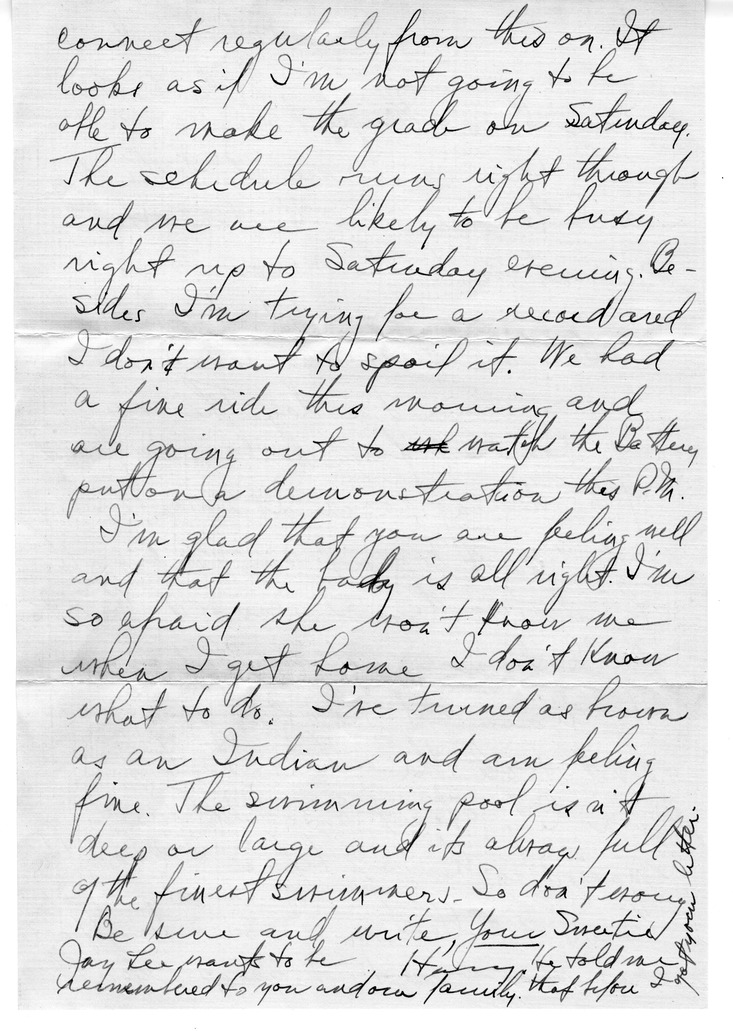 connect regularly from this on. It
looks as if I'm not going to be
able to make the grade on Saturday.
The schedule runs right through
and we are likely to be busy
right up to Saturday evening. Be-
sides I'm trying for a record and
I don't want to spoil it. We had
a fine ride this morning and
are going out to watch the Battery
put on a demonstration this P.M.
I'm glad that you are feeling well
and that the baby is all right. I'm
so afraid she won't know me
when I get home I don't know
what to do. I've turned as brown
as an Indian and am feeling
fine. The swimming pool isn't
deep or large and its always full
of the finest swimmers. So don't worry
Be sure and write, Your Sweetie
Harry
Jay Lee wants to be
remembered to you and our family. He told me
that before I
got your letter.